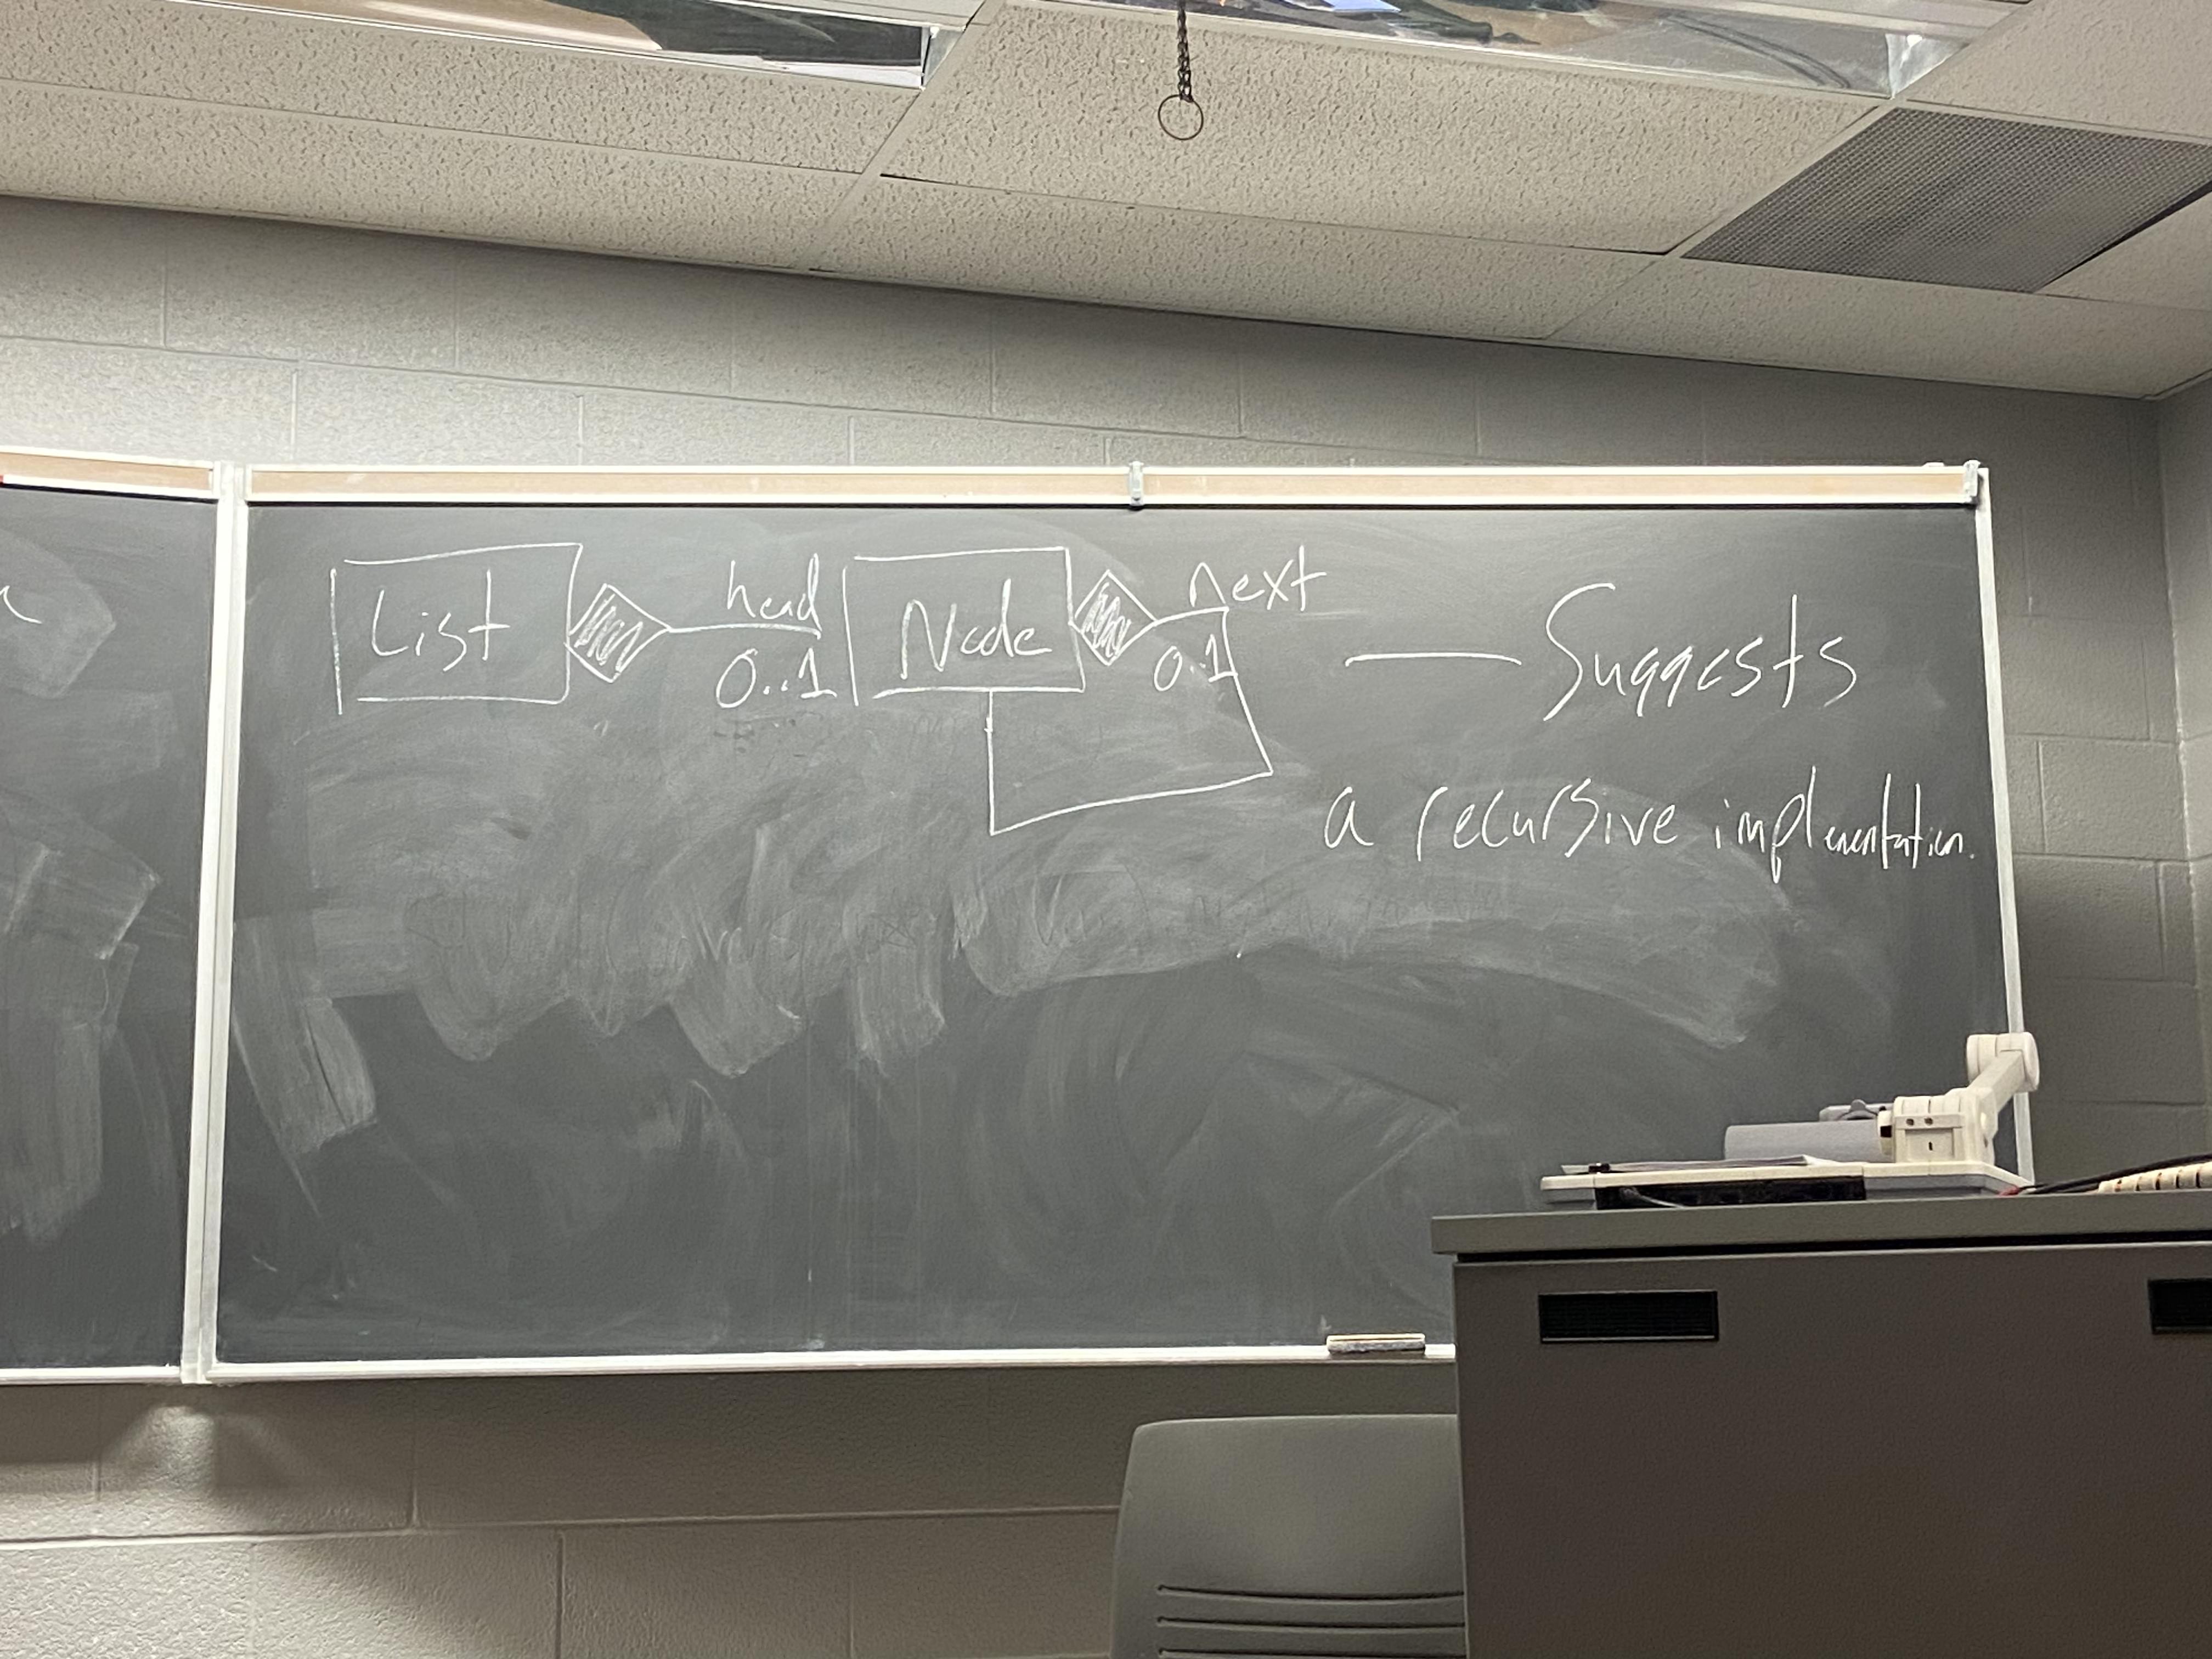 List head 0..1 Node next 0..1 — Suggests
a recursive implementation.